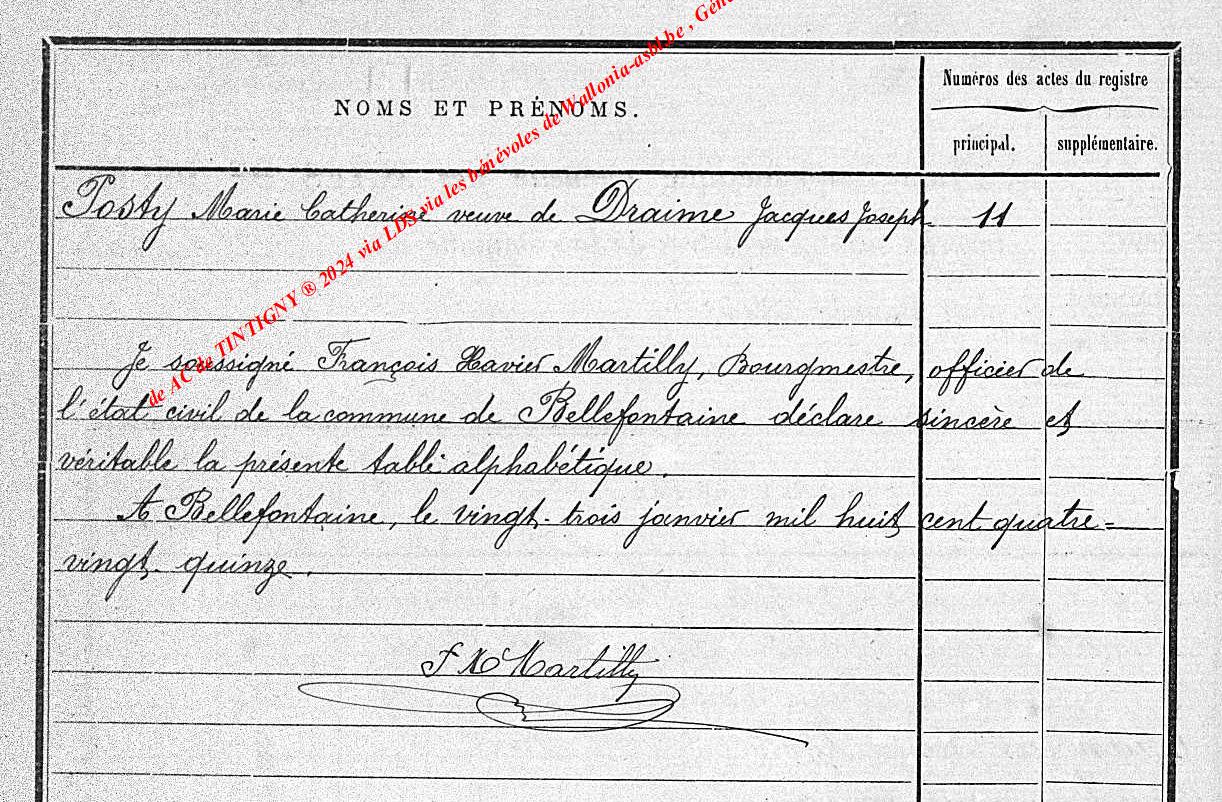 Numéros des actes du registre
NOMS ET PRÉNOMS.
principal. supplémentaire.
Posty Marie Catherine veuve de Draime Jacques Joseph 11
Je soussigné François Xavier Martilly, Bourgmestre, officier de
l'état civil de la commune de Bellefontaine déclare sincère et
véritable la présente table alphabétique.
A Bellefontaine, le vingt-trois janvier mil huit cent quatre=
vingt-quinze.
F X Martilly
de AC de TINTIGNY ® 2024 via LDS via les bénévoles de Wallonia-asbl.be , Géné